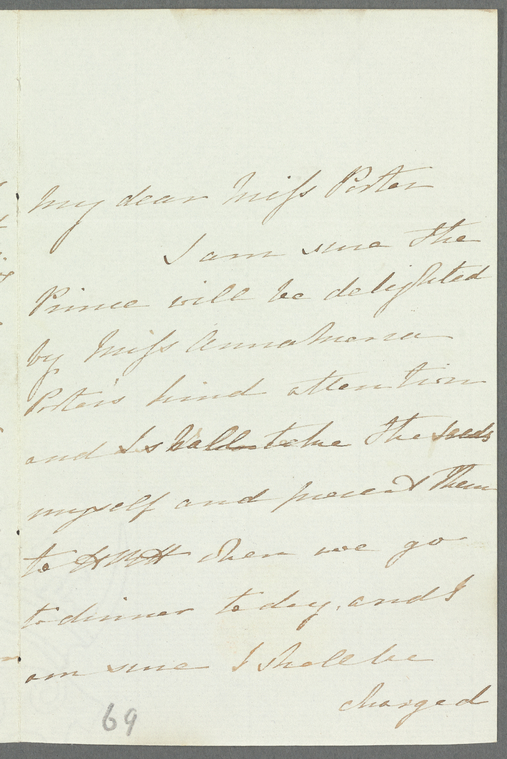 My dear Miss Porter
I am sure the
Prince will be delighted
by Miss Anna Maria
Porter's kind attention
and I shall take the seeds
myself and present them
to HRH when we go
to dinner to day, and I
am sure I shall be
charged
69